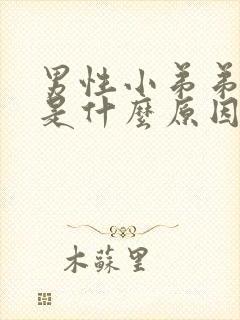 男性小弟弟
是什麼原因
木蘇里